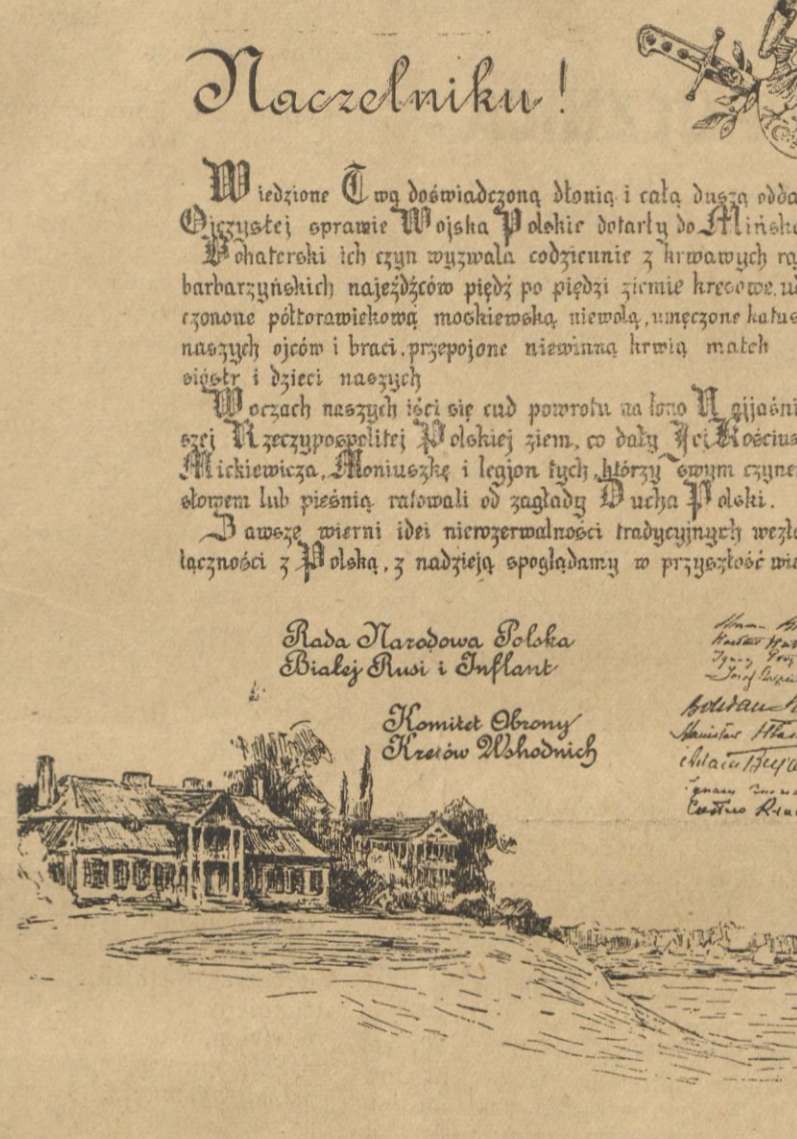 Naczelniku!
Wiedzione Twą doświadczoną dłonią i całą duszą odda
Ojczystej sprawie Wojska Polskie dotarły do Mińska
Bohaterski ich czyn wyzwala codziennie z krwawych rą
barbarzyńskich najeźdźców piędź po piędzi ziemie kresowe, u
czonone półtorawiekową moskiewską niewolą, umęczone katus
naszych ojców i braci, przepojone niewinną krwią matek
sióstr i dzieci naszych
W oczach naszych iści się cud powrotu na łono Najjaśni
szej Rzeczypospolitej Polskiej ziem, co dały Jej Kościus
Mickiewicza, Moniuszkę i legjon tych, którzy swym czyne
słowem lub pieśnią ratowali od zagłady Ducha Polski.
Zawsze wierni idei nierozerwalności tradycyjnych węzłó
łączności z Polską, z nadzieją spoglądamy w przyszłość wie
Rada Narodowa Polska
Białej Rusi i Inflant
Komitet Obrony
Kresów Wshodnich